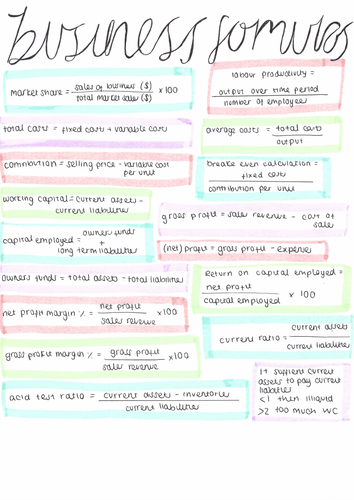 business formulas
market share = sales of business ($) / total market sales ($) × 100
labour productivity =
output over time period
number of employees
total costs = fixed costs + variable costs
average costs = total costs / output
contribution = selling price - variable cost
per unit
break even calculation =
fixed costs
contribution per unit
working capital = current assets -
current liabilities
gross profit = sales revenue - cost of
sales
capital employed = owners funds
+
long term liabilities
(net) profit = gross profit - expense
owners funds = total assets - total liabilities
return on capital employed =
net profit / capital employed × 100
net profit margin % = net profit / sales revenue ×100
current ratio = current assets / current liabilities
gross profit margin % = gross profit / sales revenue ×100
If sufficient current
assets to pay current
liabilities
<1 then illiquid
>2 too much WC
acid test ratio = current assets - inventories / current liabilities